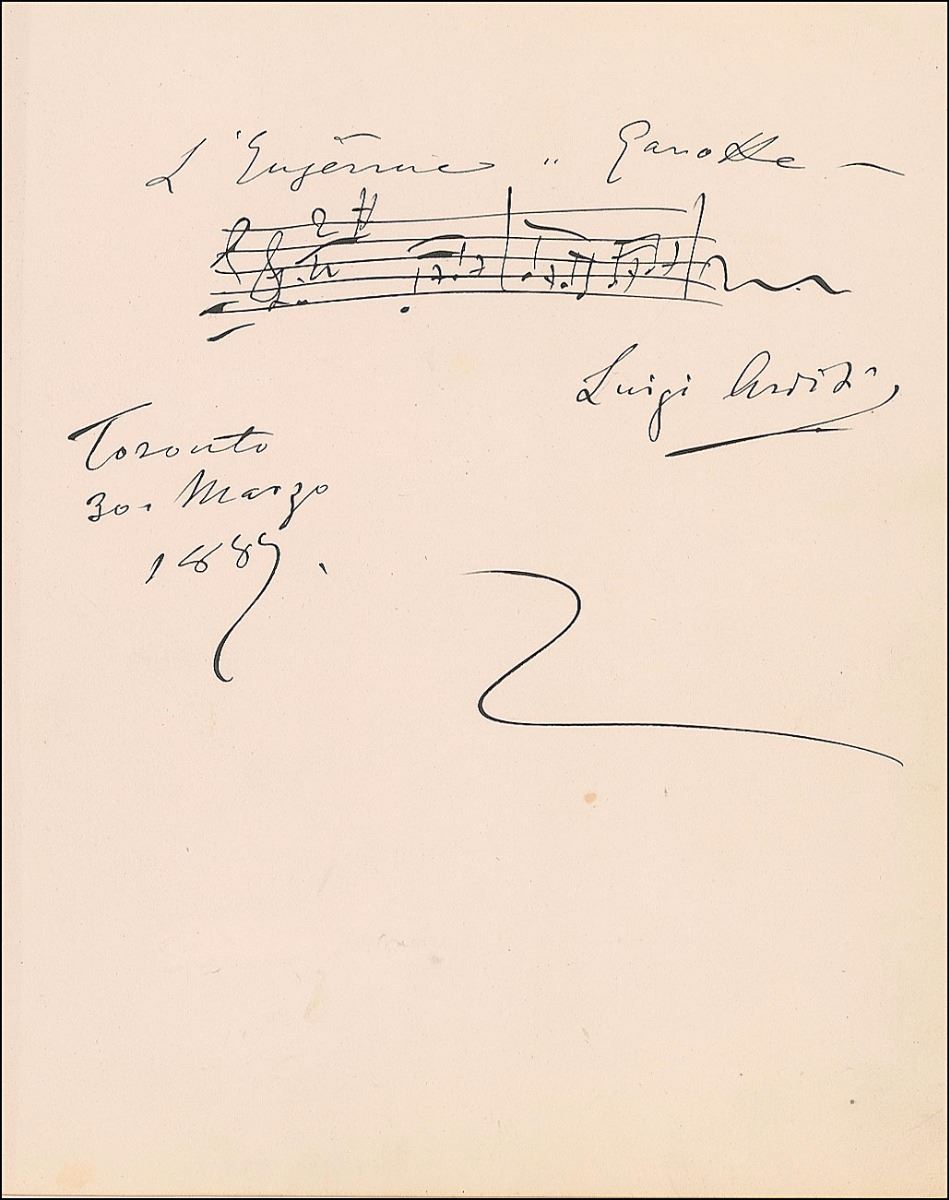 L'Ingénue „ Gavotte —
Luigi Arditi
Toronto
30. Marzo
1887.